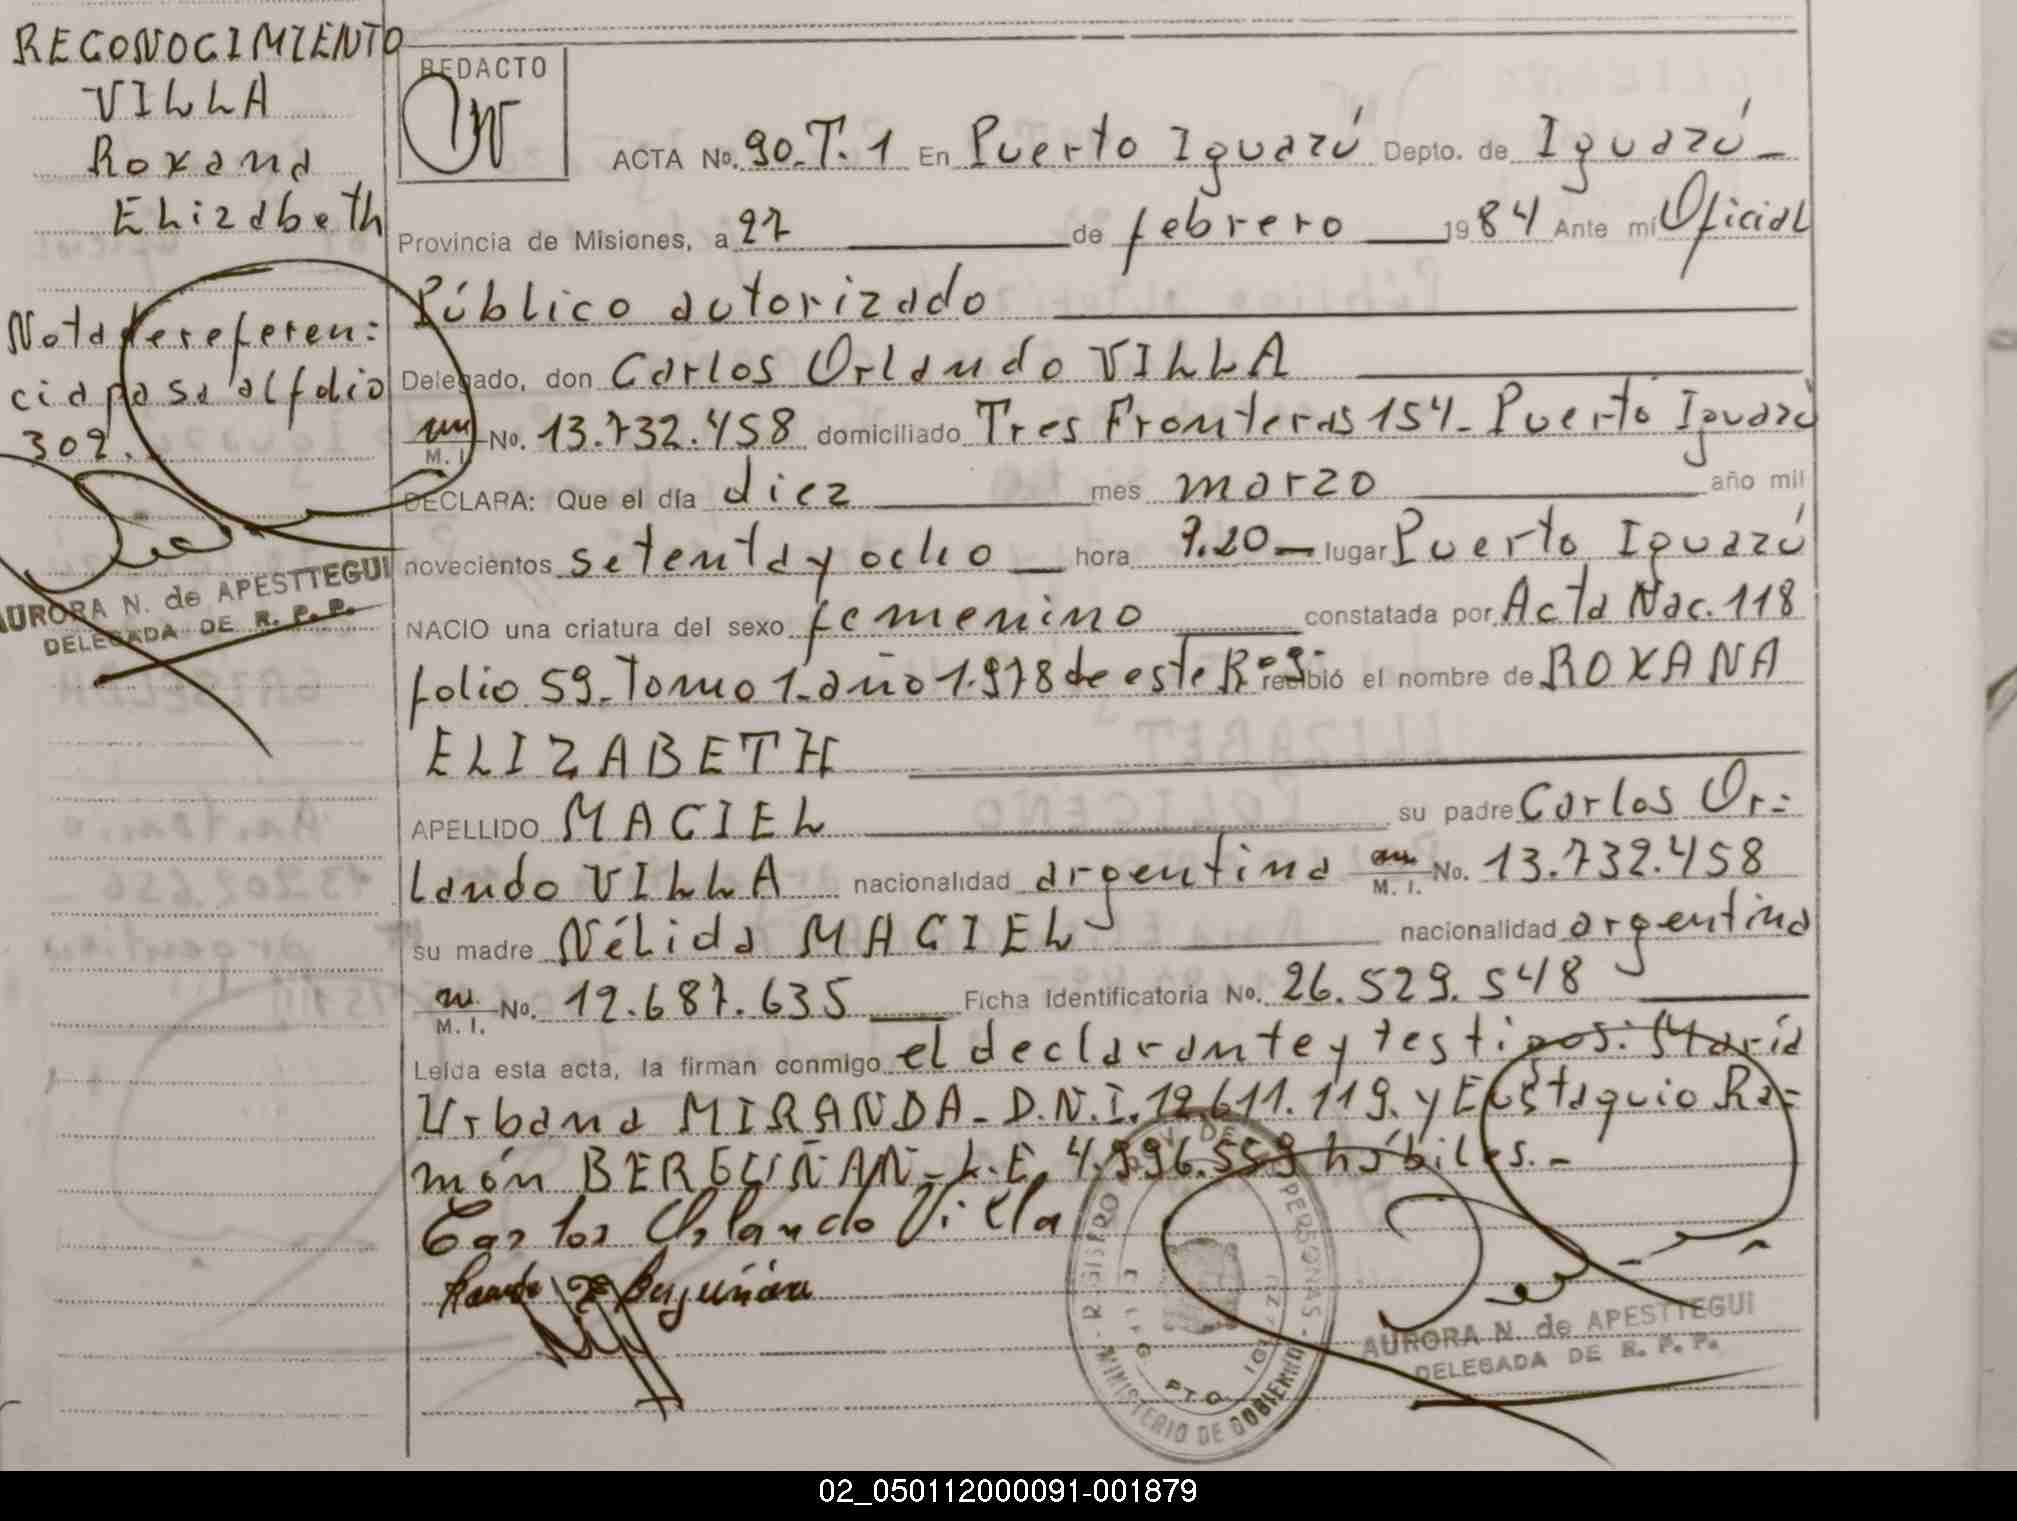 RECONOCIMIENTO
VILLA
Roxana
Elizabeth
Nota de referen=
cia pasa al folio
302.
AURORA N. de APESTTEGUI
DELEGADA DE R. P. P.
REDACTO
ACTA No. 90.T.1 En Puerto Iguazú Depto. de Iguazú
Provincia de Misiones, a 27 de febrero 1984 Ante mí Oficial
Público autorizado
Delegado, don Carlos Orlando VILLA
M. I. No. 13.732.458 domiciliado Tres Fronteras 154 - Puerto Iguazú
DECLARA: Que el día diez mes marzo año mil
novecientos setenta y ocho hora 9.20 lugar Puerto Iguazú
NACIO una criatura del sexo femenino constatada por Acta Nac. 118
folio 59. Tomo 1. año 1.978 de este Reg. recibió el nombre de ROXANA
ELIZABETH
APELLIDO MACIEL su padre Carlos Or=
lando VILLA nacionalidad argentina M. I. No. 13.732.458
su madre Nélida MACIEL nacionalidad argentina
M. I. No. 12.687.635 Ficha Identificatoria No. 26.529.548
Leída esta acta, la firman conmigo el declarante y testigos: María
Urbana MIRANDA - D.N.I. 12.611.119. y Eustaquio Ra=
món BERGUÑAN - L.E. 4.996.559 hábiles.-
Carlos Orlando Villa
REGISTRO PERSONAS
PTO. IGUAZU
MINISTERIO DE GOBIERNO
AURORA N. de APESTTEGUI
DELEGADA DE R. P. P.
02_050112000091-001879